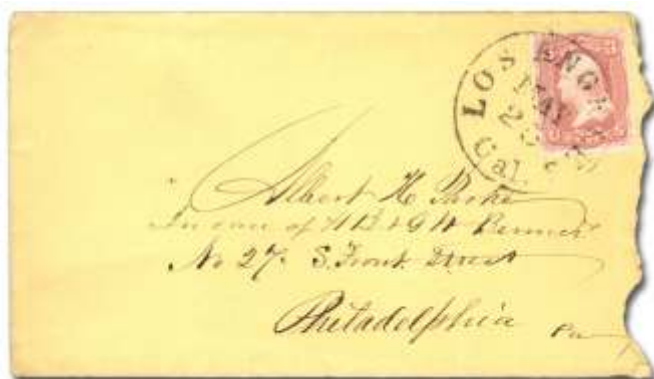 LOS ANGE
MAY
Cal.
Albert H. Parke
In care of H B & G W Benners
No 27. S. Front. Street
Philadelphia Pa